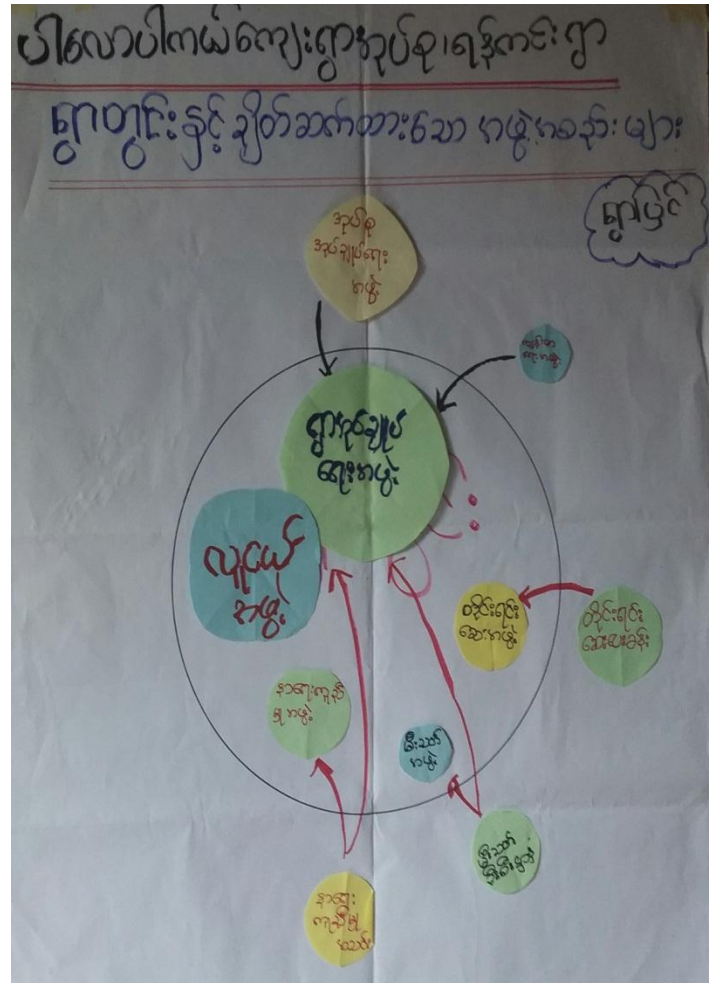 ပါလောပါကယ်ကျေးရွာအုပ်စု၊ရန်ကင်းရွာ
ရွာတွင်းနှင့်ချိတ်ဆက်ထားသော အဖွဲ့အစည်းများ
ရွာပြင်
အုပ်စု
အုပ်ချုပ်ရေး
အဖွဲ့
ရွာအုပ်ချုပ်
ရေးအဖွဲ့
လူငယ်
အဖွဲ့
တိုင်းရင်း
ဆေးအဖွဲ့
တိုင်းရင်း
နာရေးကူညီ
မှုအဖွဲ့
မီးသတ်
အဖွဲ့
မီးသတ်
နာရေး
ကူညီမှု
အသင်း